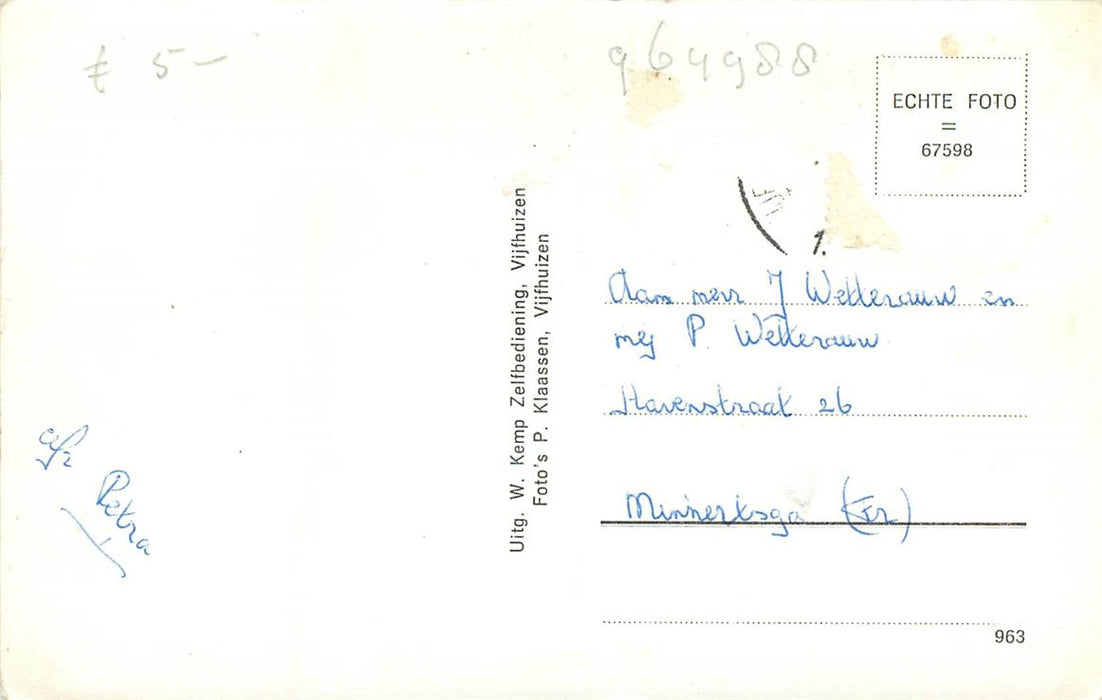 € 5 –
964988
ECHTE FOTO
=
67598
1.
Uitg. W. Kemp Zelfbediening, Vijfhuizen
Foto's P. Klaassen, Vijfhuizen
Aan mevr J Wetterauw en
mej P. Wetterauw
Havenstraat 26
Minnertsga (Fr)
afz Petra
963